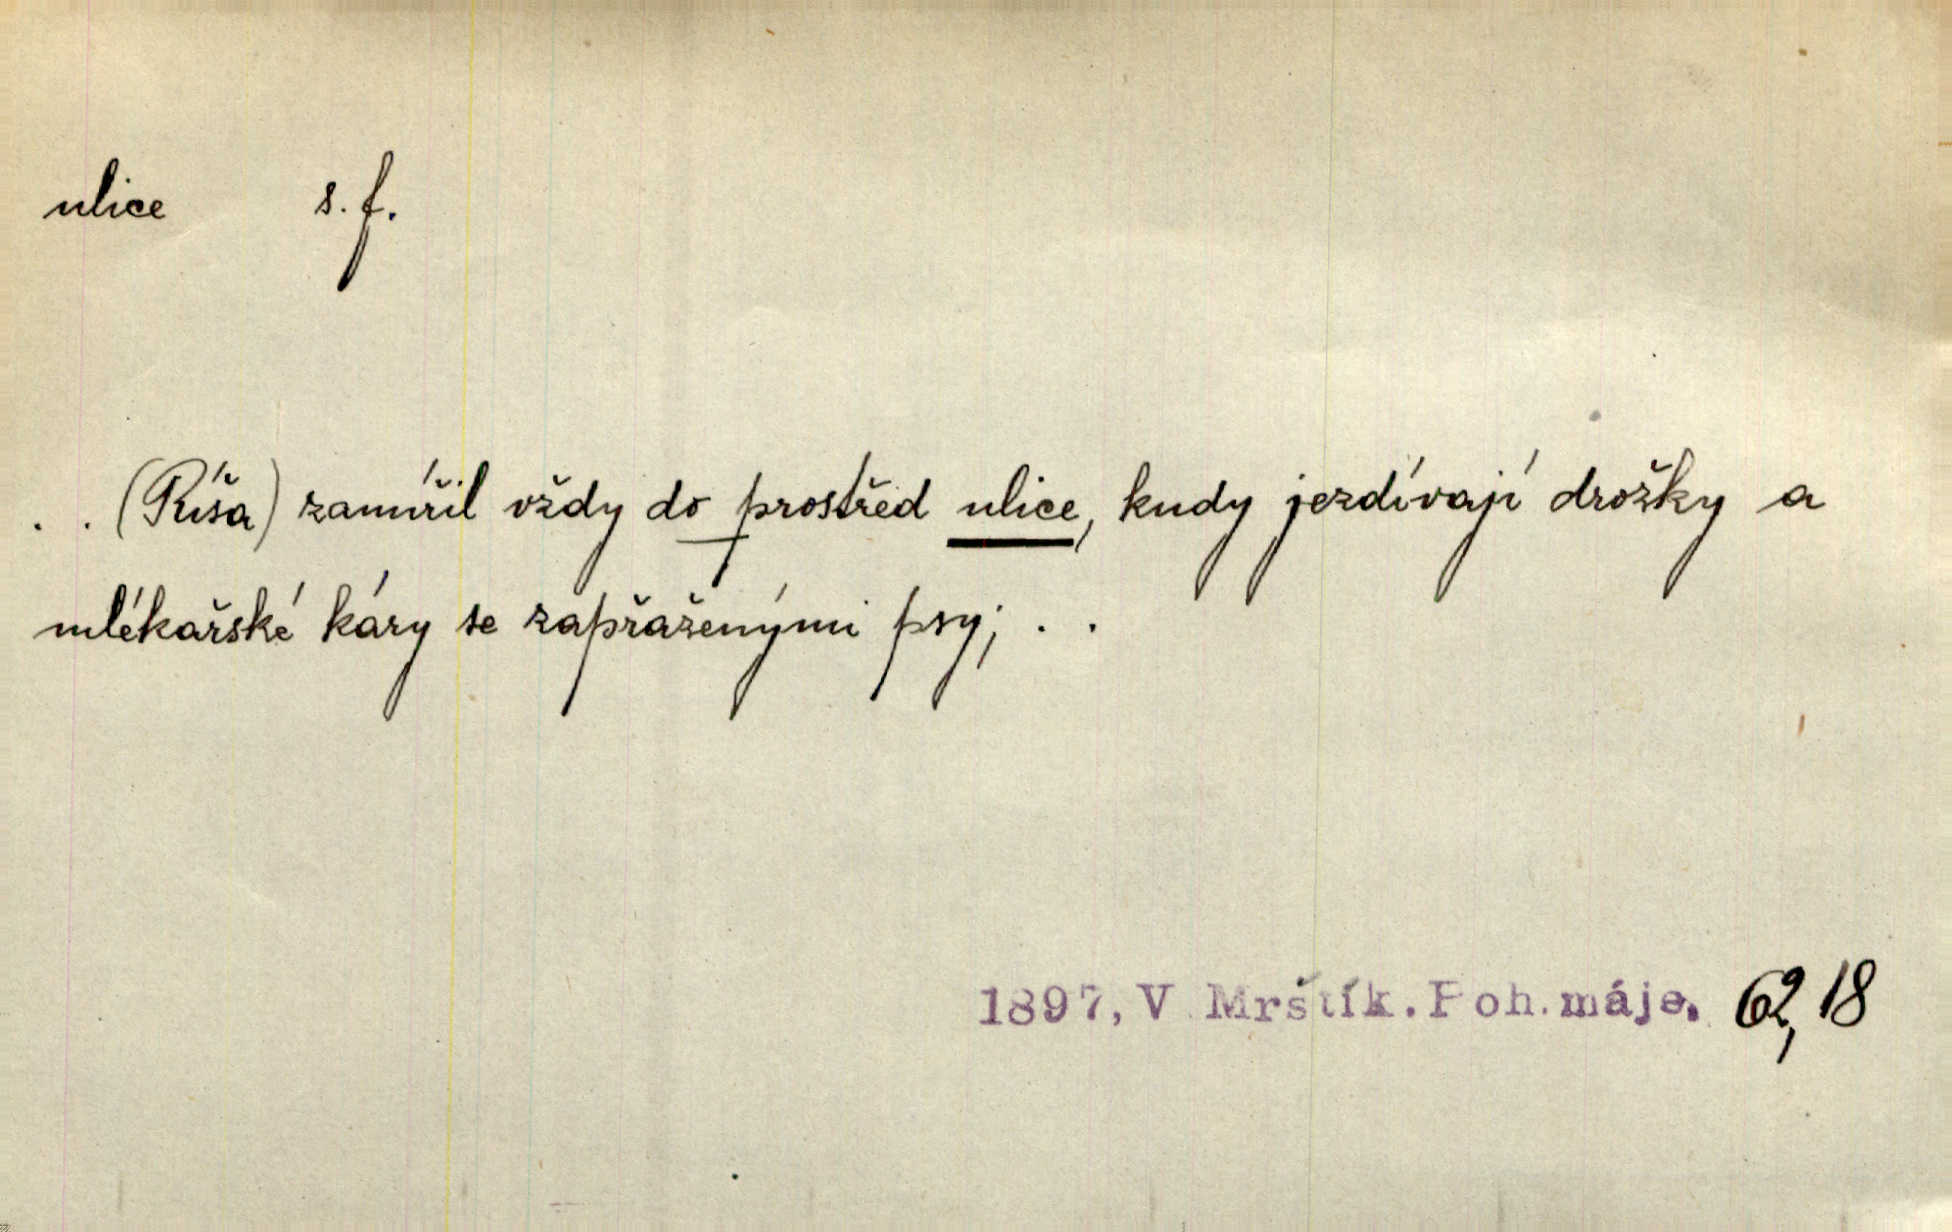 ulice s. f.
. . (Ríša) zamířil vždy do prostřed ulice, kudy jezdívají drožky a
mlékařské káry se zapřaženými psy; . .
1897, V. Mrštík. Poh. máje. 62, 18